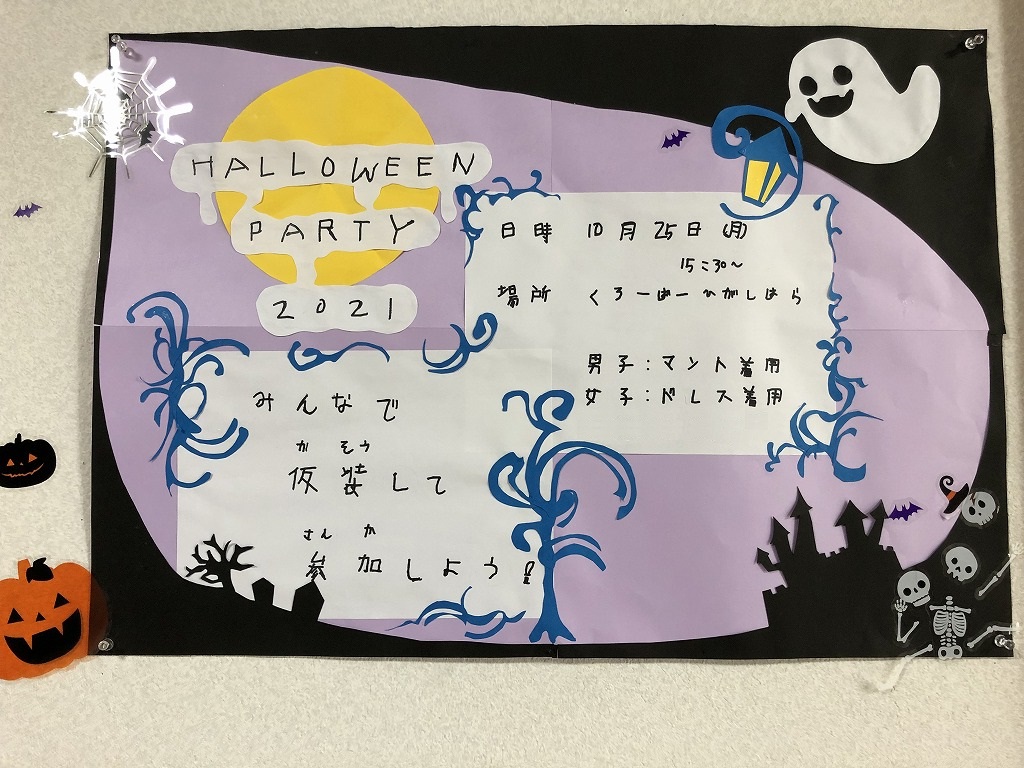 HALLOWEEN
PARTY
2021
日時 10月25日(月)
15:30〜
場所 くろーばーひがしはら
男子:マント着用
女子:ドレス着用
みんなで
かそう
仮装して
さんか
参加しよう!